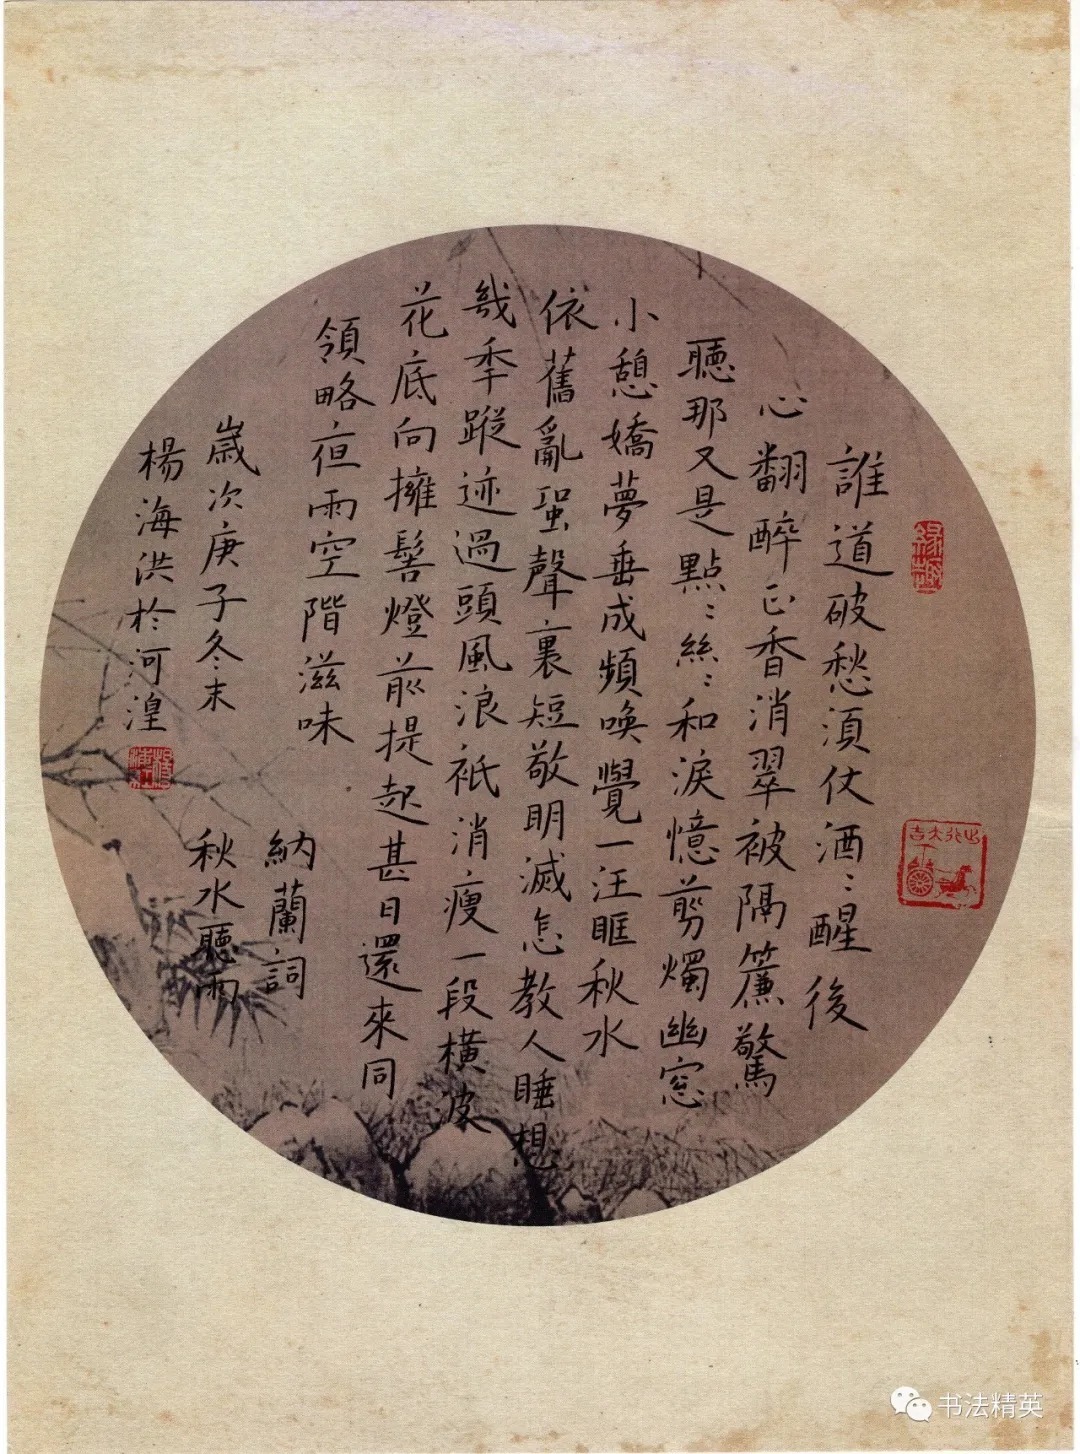 誰道破愁須仗酒〻醒後
心翻醉正香消翠被隔簾驚
聽那又是點〻絲〻和淚憶剪燭幽窓
小憩嬌夢垂成頻喚覺一汪眶秋水
依舊亂蛩聲裏短敬明滅怎教人睡想
幾年蹤迹過頭風浪祇消瘦一段橫波
花底向擁髻燈前提起甚日還來同
領略夜雨空階滋味
納蘭詞
秋水聽雨
歲次庚子冬末
楊海洪於河湟
出行大吉
书法精英